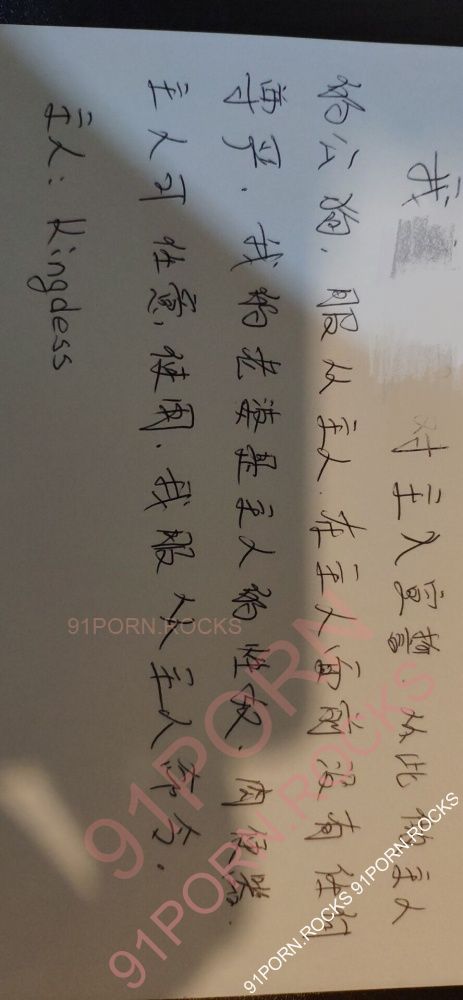 我 对主人宣誓 从此做主人
的公狗，服从主人，在主人面前没有任何
尊严，我的老婆是主人的性奴、肉便器，
主人可任意使用，我服从主人命令。
主人：Kingdess
91PORN.ROCKS
91PORN
91PORN.ROCKS
91PORN.ROCKS 91PORN.ROCKS